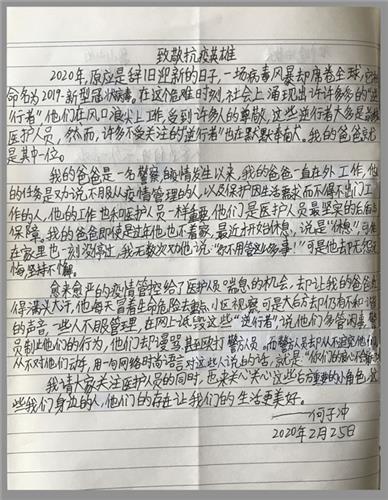 致敬抗疫英雄
2020年,原应是辞旧迎新的日子,一场病毒风暴却席卷全球,它被
命名为2019-新型冠状病毒。在这个危难时刻,社会上涌现出许许多多的“逆
行者”他们在风口浪尖上工作,受到许多人的尊敬,这些逆行者大多是前线
医护人员,然而,许多不受关注的“逆行者”也在默默奉献着大。我的爸爸就
是其中一位。
我的爸爸是一名警察自疫情发生以来,我的爸爸一直在外工作,他
的任务是劝说不服从疫情管理的人,以及保护因生活要求而不得不出门工
作的人,他的工作也和医护人员一样重要,他们是医护人员最坚实的后盾与
保障。我的爸爸即使是过年他也不着家,最近才开始休息,说是“休息”可是
在家里也一刻没停过,我无数次对他说“你不用管这么多事!”可是他去却无怨无
悔坚持不懈。
愈来愈严的疫情管控给了医护人员喘息的机会,却让我的爸爸忙
得满头大汗,他每天冒着生命危险去重点小区视察可是大后方却仍有不和谐
的声音,一些人不服从管理,在网上诋毁这些“逆行者”,说他们多管闲事,警
员制止他们的行为,他们却谩骂甚至殴打警务人员,而警务人员却从不抱怨他们,
从不对他们动手,用一句网络时尚语言对这些人说的话,就是“你们的良心不会痛
我请大家关注医护人员的同时,也来关心关心这些后方重要的小角色,这
些我们身边的人,他们的存在让我们的生活更美好。
——何子冲
2020年2月25日